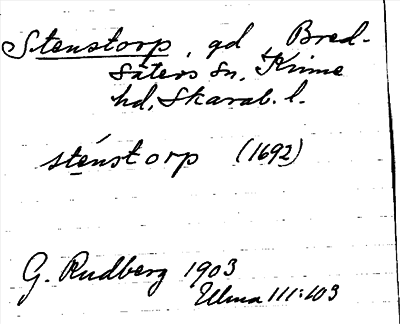 Stenstorp, gd Bred-
säters sn, Kinne
hd, Skarab. l.
sténstorp (1692)
G. Rudberg 1903
Ulma 111:103